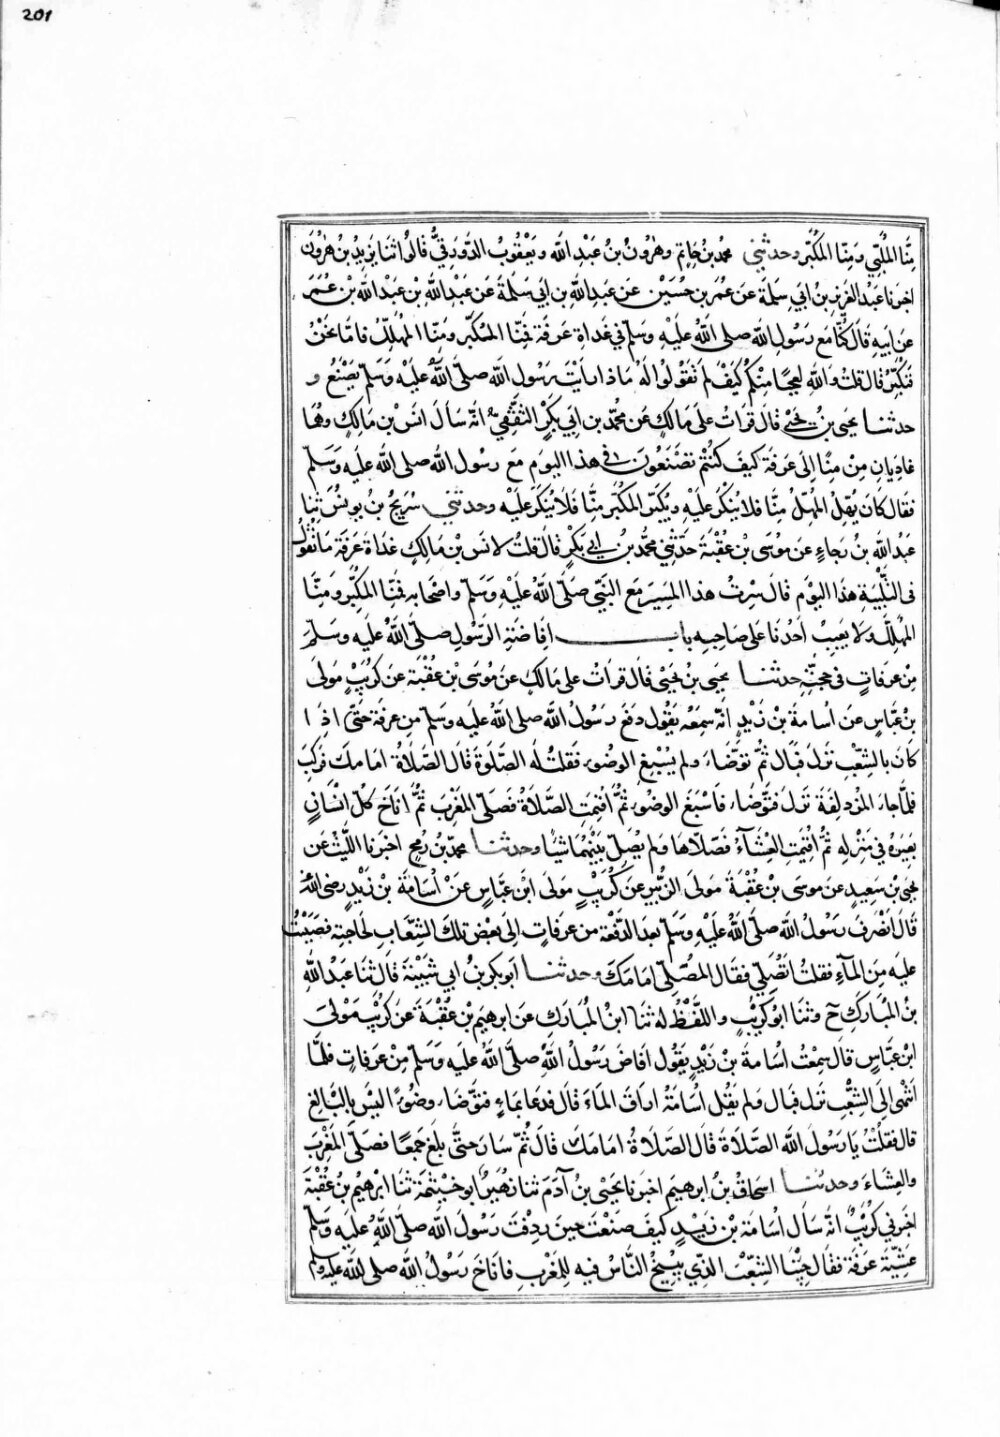 201
مِنَّا المُلَبِّي وَمِنَّا المُكَبِّر وحدثني محمد بن حاتم وهٰرون بن عبد الله ويعقوب الدَّورقيُّ قالوا ثنا يزيد بن هٰرون
اخبرنا عبد العزيز بن ابي سلمة عن عمر بن حسين عن عبد الله بن ابي سلمة عن عبد الله بن عبد الله بن عمر
عن ابيه قال كنا مع رسول الله صلى الله عليه وسلم في غداة عرفة فمنّا المكبّر ومنا المهلِّل فاما نحن
فنكبّر قال قلت والله لعجبًا منكم كيف لم تقولوا له ماذا رأيت رسول الله صلى الله عليه وسلم يصنع و
حدثنا يحيى بن يحيى قال قرات على مالك عن محمد بن ابي بكر الثقفي انه سأل انس بن مالك وهما
غاديان من منًا الى عرفة كيف كنتم تصنعون في هذا اليوم مع رسول الله صلى الله عليه وسلم
فقال كان يهل المهل منّا فلا ينكر عليه ويكبّر المكبّر منّا فلا ينكر عليه وحدثني سريج بن يونس ثنا
عبد الله بن رجاء عن موسى بن عقبة حدثني محمد بن ابي بكر قال قلت لانس بن مالك غداة عرفة ما تقول
في التلبية هذا اليوم قال سرت هذا المسير مع النبي صلى الله عليه وسلم واصحابه فمنا المكبر ومنّا
المهلل ولا يعيب احدنا على صاحبه باب افاضة الرسول صلى الله عليه وسلم
من عرفات في حجته حدثنا يحيى بن يحيى قال قرات على مالك عن موسى بن عقبة عن كريب مولى
بن عباس عن اسامة بن زيد انه سمعه يقول دفع رسول الله صلى الله عليه وسلم من عرفة حتى اذا
كان بالشعب نزل فبال ثم توضاء ولم يسبغ الوضوء فقلت له الصلوة قال الصلاة امامك فركب
فلما جاء المزدلفة نزل فتوضاء فاسبغ الوضوء ثم اقيمت الصلاة فصلى المغرب ثم اناخ كل انسان
بعيره في منزله ثم اقيمت العشاء فصلاها ولم يصل بينهما شيئا وحدثنا محمد بن رمح اخبرنا الليث عن
يحيى بن سعيد عن موسى بن عقبة مولى الزبير عن كريب مولى ابن عباس عن اسامة بن زيد رضي الله
قال انصرف رسول الله صلى الله عليه وسلم بعد الدفعة من عرفات الى بعض تلك الشعاب لحاجته فصببت
عليه من الماء فقلت اتصلي فقال المصلى امامك وحدثنا ابو بكر بن ابي شيبة قال ثنا عبد الله
بن المبارك ح وثنا ابو كريب واللفظ له ثنا ابن المبارك عن ابرهيم بن عقبة عن كريب مولى
ابن عباس قال سمعت اسامة بن زيد يقول افاض رسول الله صلى الله عليه وسلم من عرفات فلما
انتهى الى الشعب نزل فبال ولم يقل اسامة اراق الماء قال فدعا بماء فتوضاء وضوءا ليس بالبالغ
قال فقلت يا رسول الله الصلاة قال الصلاة امامك قال ثم سار حتى بلغ جمعا فصلى المغرب
والعشاء وحدثنا اسحاق بن ابرهيم اخبرنا يحيى بن آدم ثنا زهير ابو خيثمة ثنا ابرهيم بن عقبة
اخبرني كريب انه سأل اسامة بن زيد كيف صنعت حين ردفت رسول الله صلى الله عليه وسلم
عشية عرفة فقال جئنا الشعب الذي ينيخ الناس فيه للمغرب فاناخ رسول الله صلى الله عليه وسلم